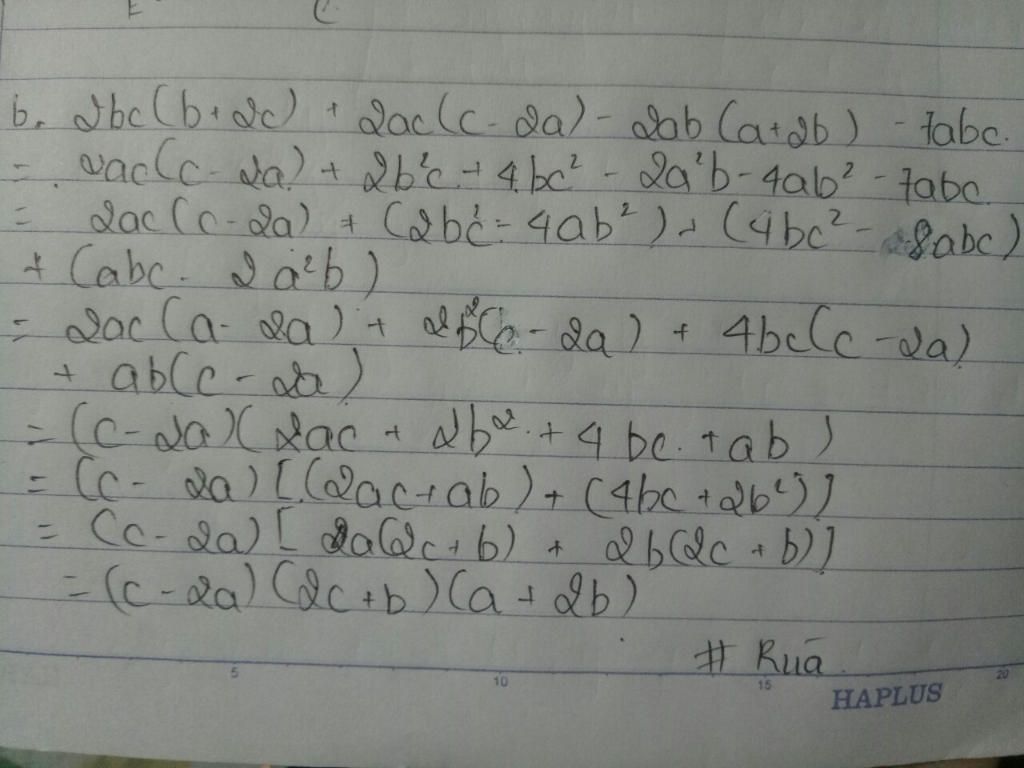 b. 2bc(b+2c) + 2ac(c-2a) - 2ab(a+2b) - 7abc.
= 2ac(c-2a) + 2b²c + 4bc² - 2a²b - 4ab² - 7abc
= 2ac(c-2a) + (2b²c - 4ab²) + (4bc² - 8abc)
+ (abc - 2a²b)
= 2ac(a-2a) + 2b²(c-2a) + 4bc(c-2a)
+ ab(c-2a)
= (c-2a)(2ac + 2b² + 4bc + ab)
= (c-2a)[(2ac+ab) + (4bc+2b²)]
= (c-2a)[a(2c+b) + 2b(2c+b)]
= (c-2a)(2c+b)(a+2b)
# Rùa
5 10 15 20
HAPLUS